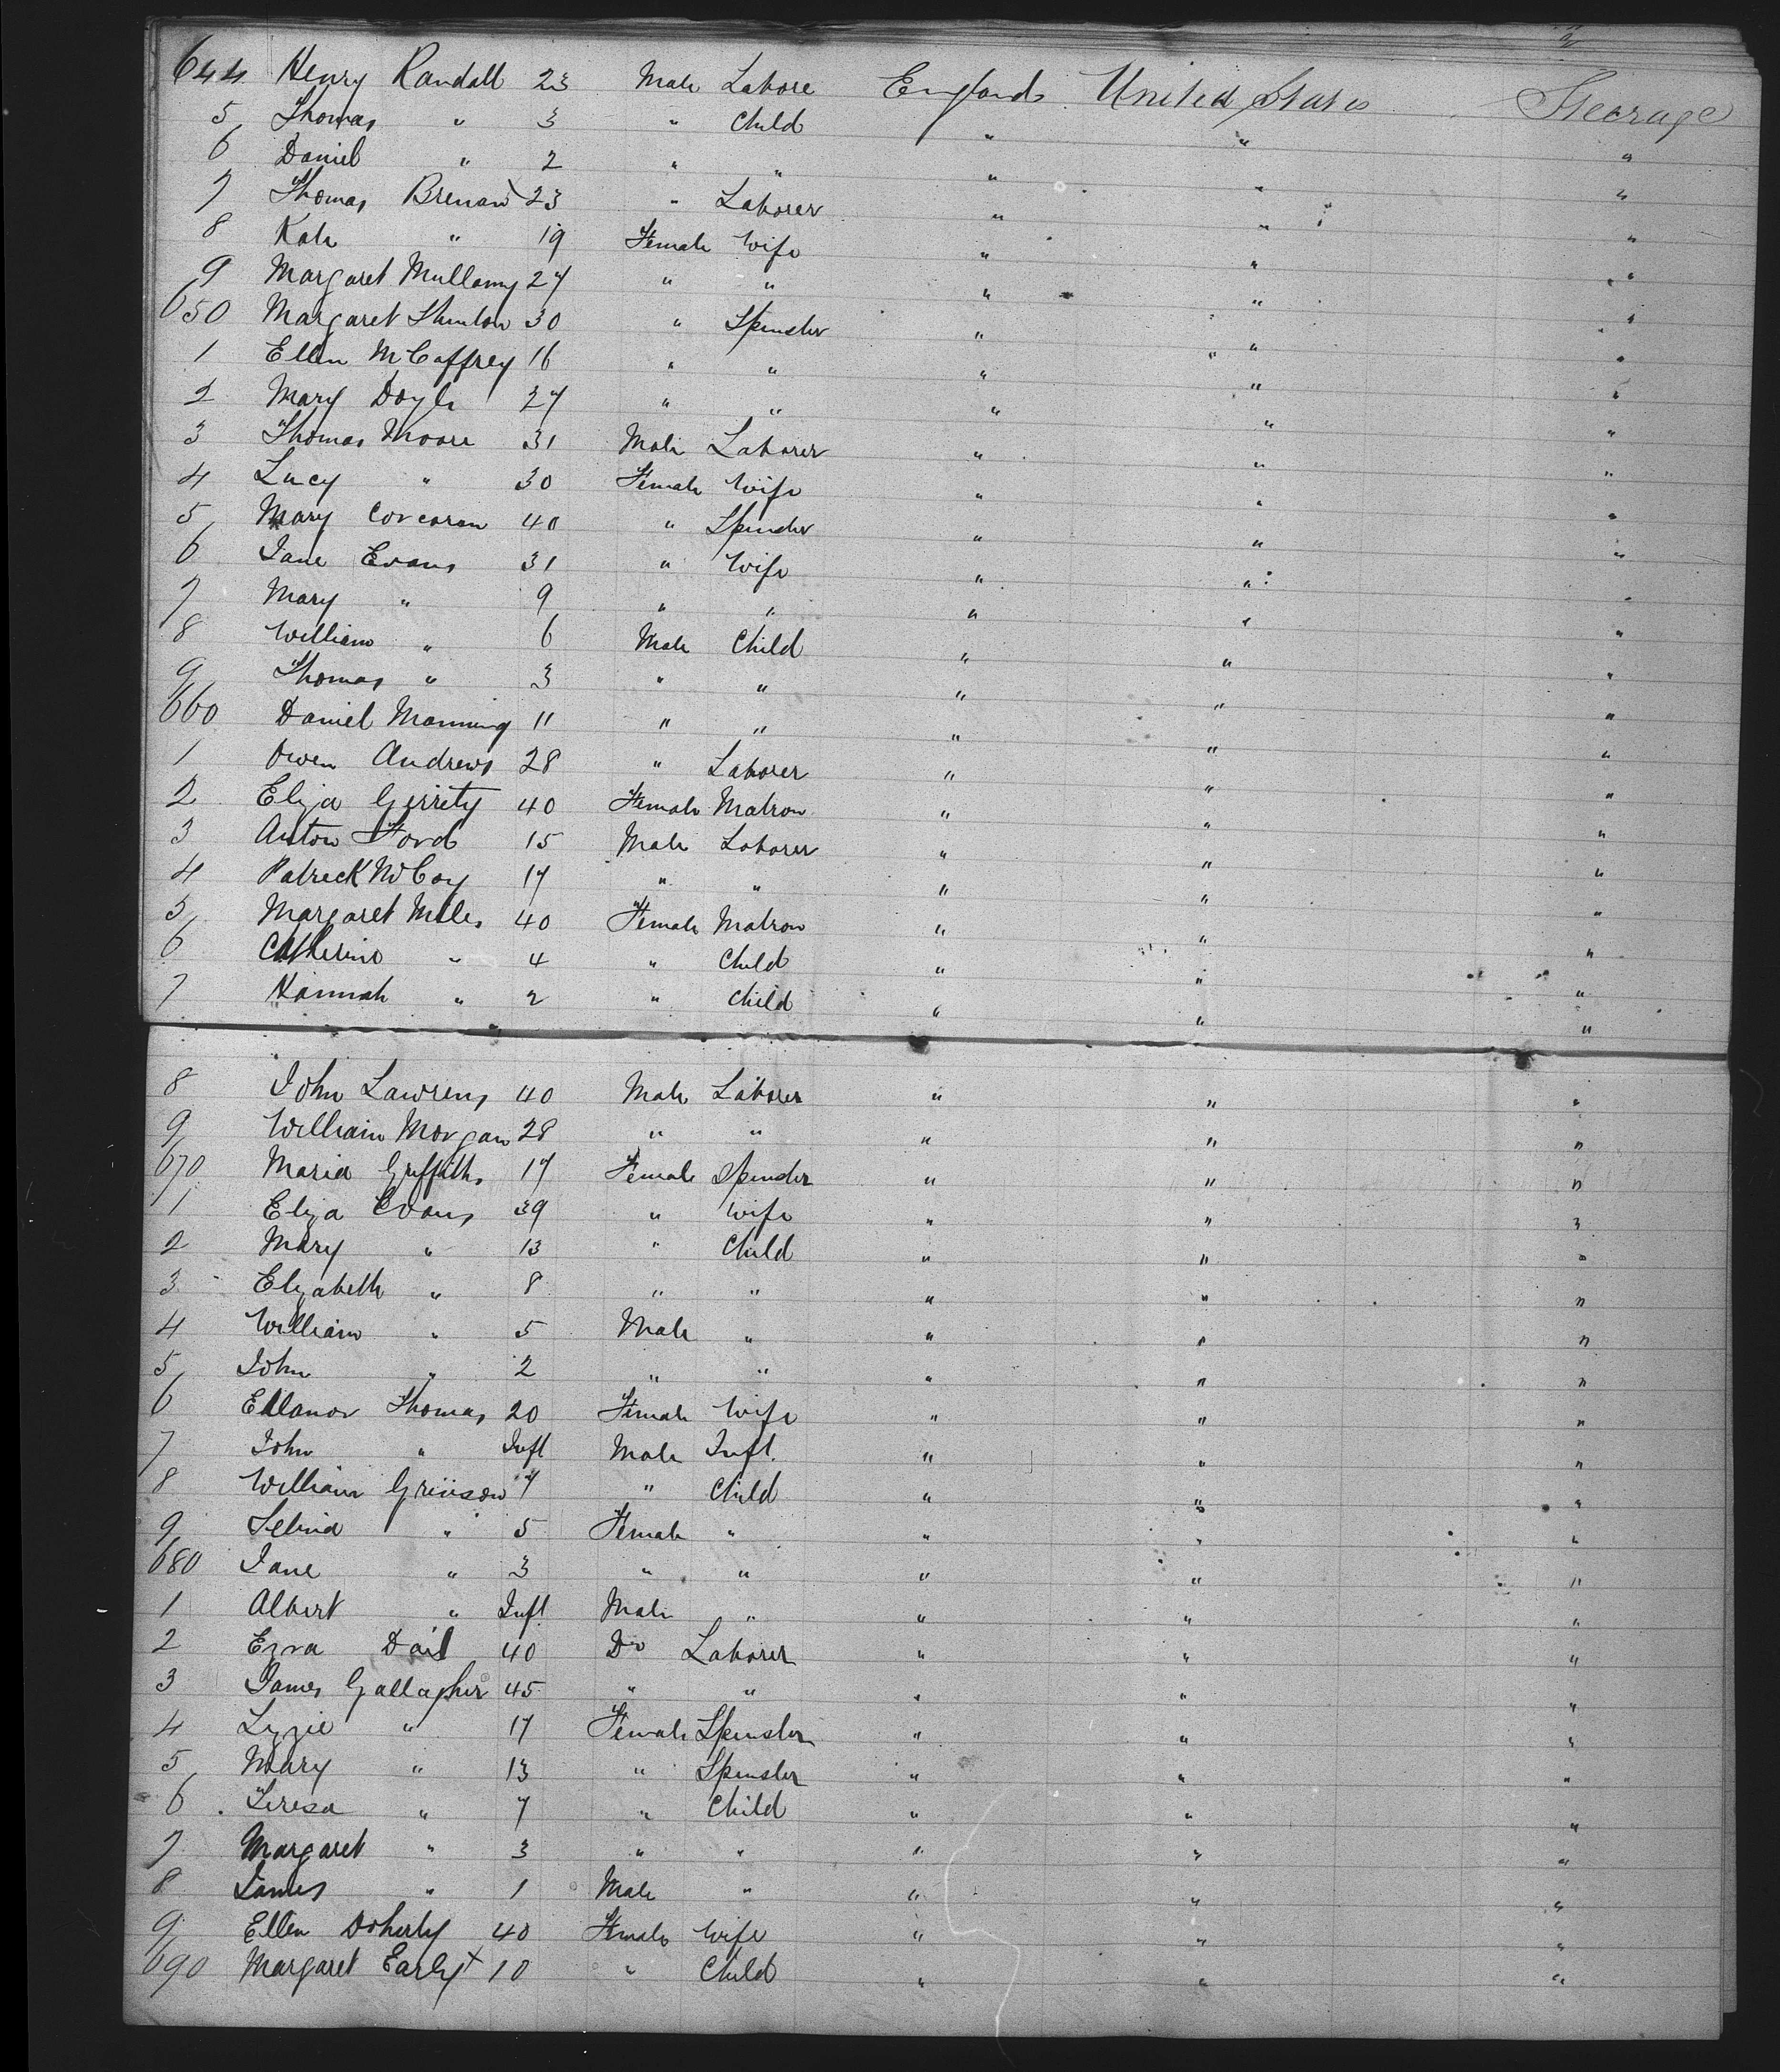 644 Henry Randall 23 Male Labore England United States Steerage
5 Thomas " 3 " Child " " "
6 Daniel " 2 " " " " "
7 Thomas Brenan 23 " Laborer " " "
8 Kate " 19 Female Wife " " "
9 Margaret Mullany 27 " " " " "
650 Margaret 30 " Spinster " " "
1 Ellen McCaffrey 16 " " " " "
2 Mary Doyle 27 " " " " "
3 Thomas Moore 31 Male Laborer " " "
4 Lucy " 30 Female Wife " " "
5 Mary Corcoran 40 " Spinster " " "
6 Jane Evans 31 " Wife " " "
7 Mary " 9 " " " " "
8 William " 6 Male Child " " "
9 Thomas " 3 " " " " "
660 Daniel Manning 11 " " " " "
1 Owen Andrews 28 " Laborer " " "
2 Eliza Gerrety 40 Female Matron " " "
3 Anton Ford 15 Male Laborer " " "
4 Patreck McCoy 17 " " " " "
5 Margaret Miles 40 Female Matron " " "
6 Catherine " 4 " Child " " "
7 Hannah " 2 " Child " " "
8 John Lawrens 40 Male Laborer " " "
9 William Morgan 28 " " " " "
670 Maria Griffiths 17 Female Spinster " " "
1 Eliza Evans 39 " Wife " " "
2 Mary " 13 " Child " " "
3 Elizabeth " 8 " " " " "
4 William " 5 Male " " " "
5 John " 2 " " " " "
6 Ellanor Thomas 20 Female Wife " " "
7 John " Inft Male Inft. " " "
8 William Grinson 7 " Child " " "
9 Selina " 5 Female " " " "
680 Jane " 3 " " " " "
1 Albert " Inft Male " " " "
2 Ezra Dail 40 Do Laborer " " "
3 James Gallagher 45 " " " " "
4 Lizzie " 17 Female Spinster " " "
5 Mary " 13 " Spinster " " "
6 Teresa " 7 " Child " " "
7 Margaret " 3 " " " " "
8 James " 1 Male " " " "
9 Ellen Doherty 40 Female Wife " " "
690 Margaret Early 10 " Child " " "